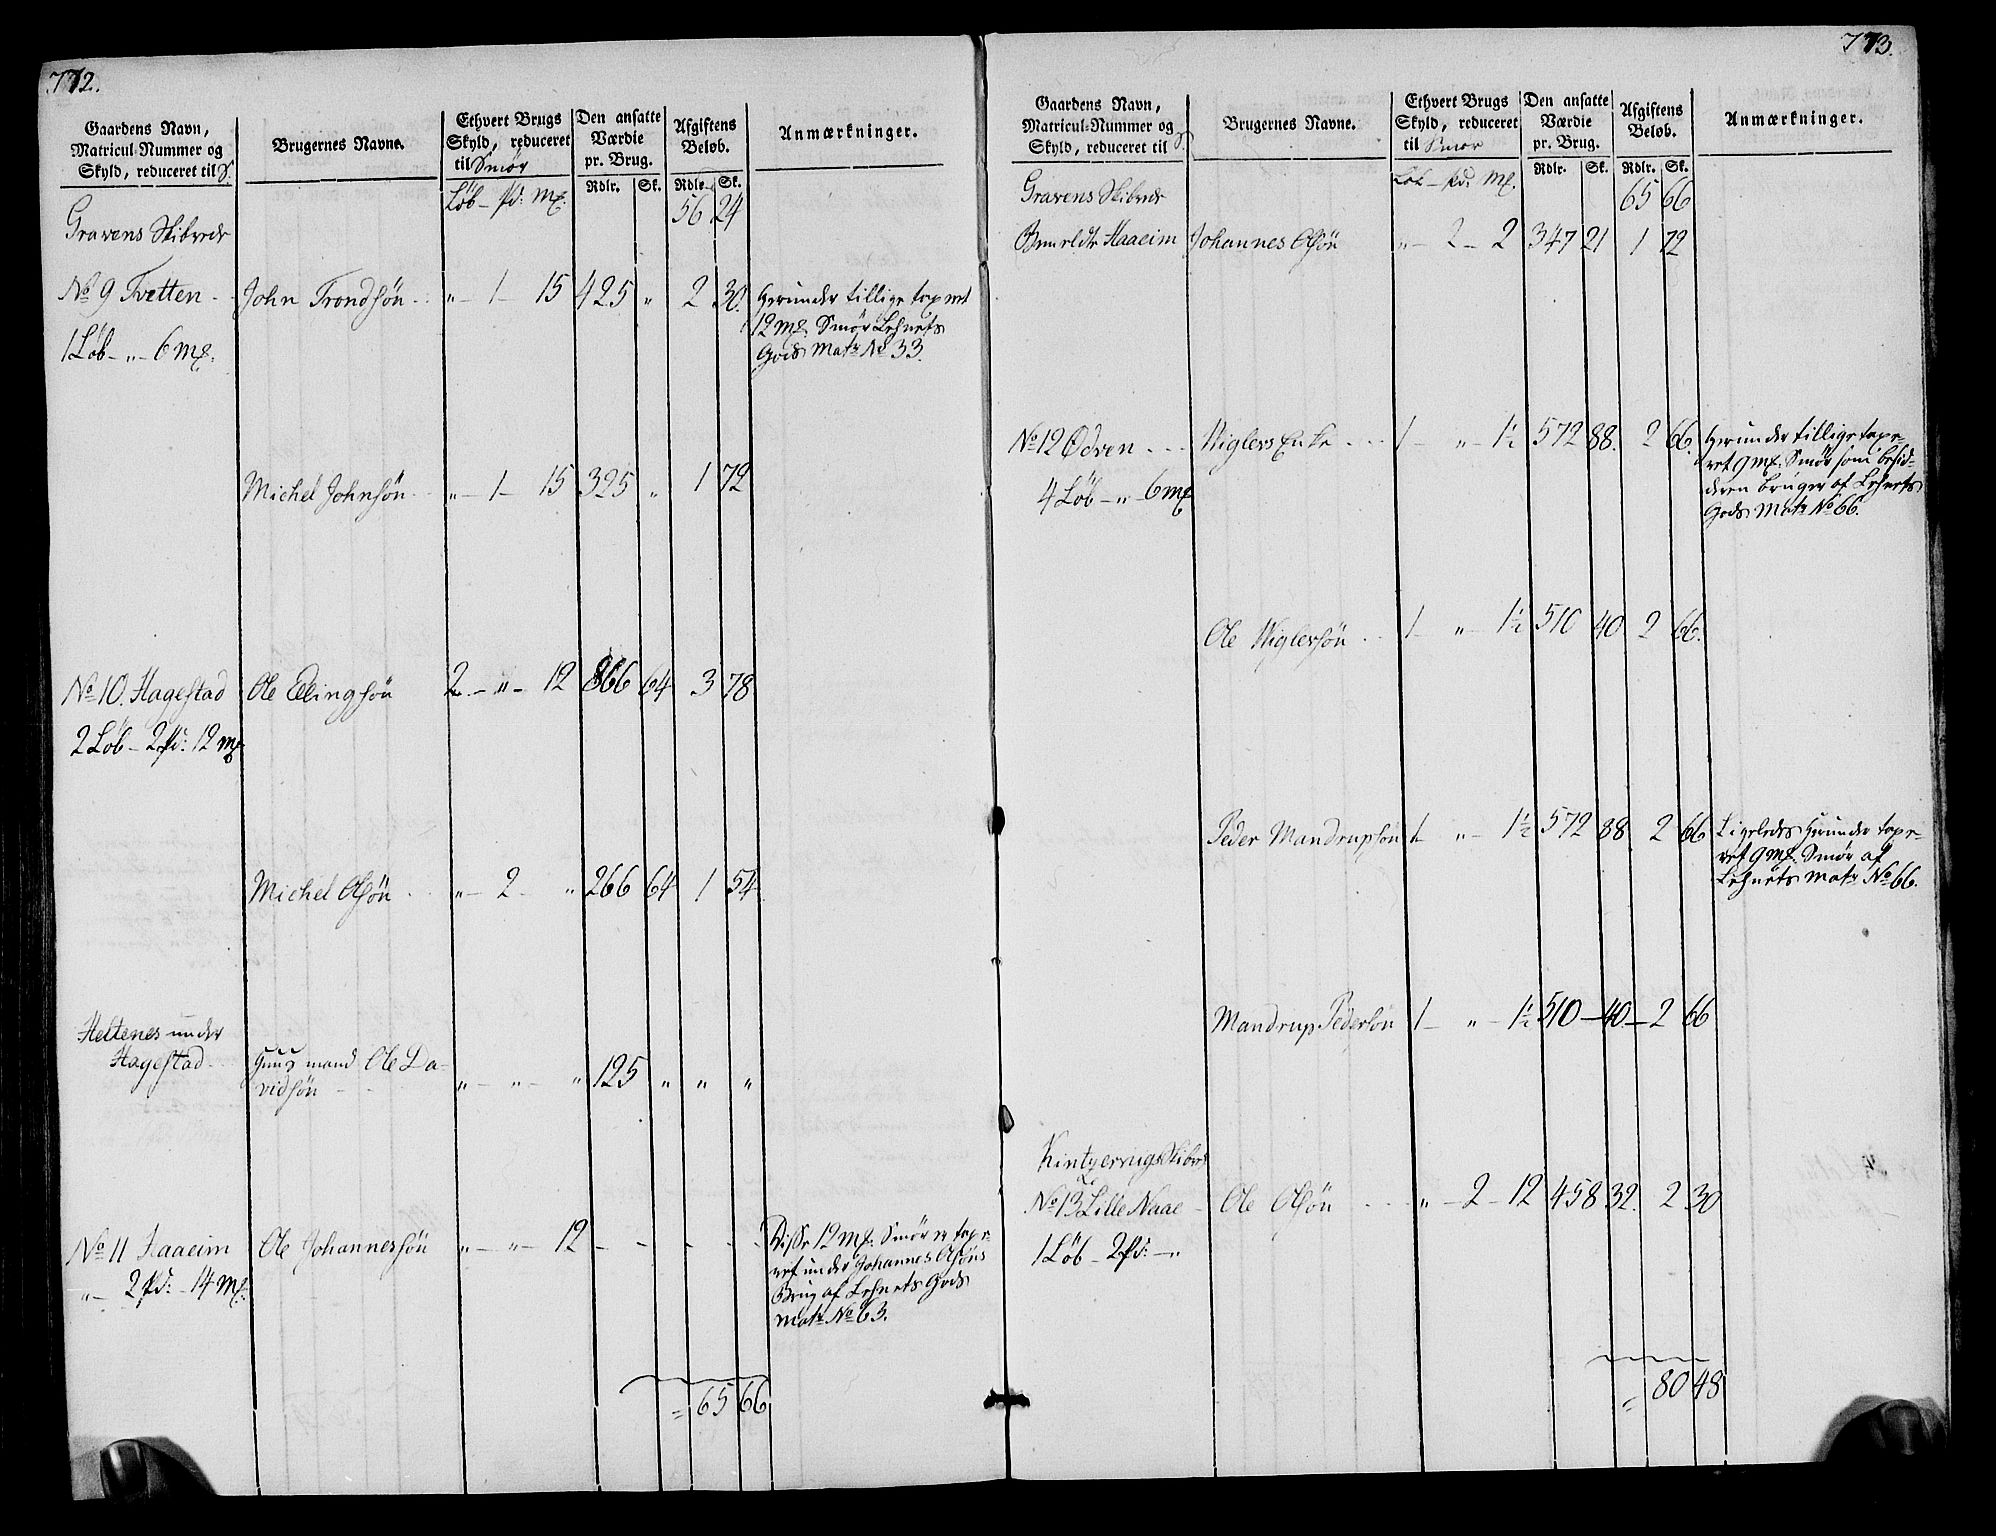 772.
Gaardens Navn, Matricul-Nummer og Skyld, reduceret til S.
Brugernes Navne.
Ethvert Brugs Skyld, reduceret til Smør
Den ansatte Værdie pr. Brug.
Afgiftens Beløb.
Anmærkninger.
Løb - pd: mk.
Rdlr. Sk. Rdlr. Sk.
Gravens Skibrede 56 24
No 9 Tvetten - John Trondsøn - " - 1 - 15 425 " 2 30. Herunder tillige taxeret
1 Løb - " - 6 mk. 12 mk. Smør Lehnets
Gods Matr No 33.
Michel Johnsøn - " - 1 - 15 325 " 1 72
No 10. Hagestad Ole Ellingsøn 2 - " - 12 866 64 3 78
2 Løb - 2 pd: 12 mk
Michel Olsøn - " - 2 - " 266 64 1 54
Heltenes under
Hagestad Huusmand Ole Da-
vidsøn - - " - " - " 125 " " "
No 11 Haaeim Ole Johannessøn " - " - 12 - - - - Disse 12 mk. Smør er taxe-
" - 2 pd: - 14 mk. ret under Johannes Olsøns
Brug af Lehnets Gods
Matr No 63.
= 65 66
773.
Gaardens Navn, Matricul-Nummer og Skyld, reduceret til S
Brugernes Navne.
Ethvert Brugs Skyld, reduceret til Smør
Den ansatte Værdie pr. Brug.
Afgiftens Beløb.
Anmærkninger.
Løb - pd: mk.
Rdlr. Sk. Rdlr. Sk.
Gravens Skibrede 65 66
Bemeldte Haaeim Johannes Olsøn " - 2 - 2 347 21 1 72
No 12 Ødven - - - Wiglers Enke - - - 1 - " - 1½ 572 88. 2 66. Herunder tillige taxe-
4 Løb - " 6 mk ret 9 mk. Smør som besid-
deren bruger af Lehnets
Gods Matr No 66.
Ole Wiglersøn - - 1 - " - 1½ 510 40 2 66.
Peder Mandrupsøn 1 - " - 1½ 572 88 2 66 Ligeledes herunder taxe-
ret 9 mk. Smør af
Lehnets Matr No 66.
Mandrup Pedersøn 1 - " - 1½ 510 - 40 - 2 66
Kintzervigs Skibrede
No 13 Lille Naae - Ole Olsøn - - - " - 2 - 12 458 32. 2 30
1 Løb - 2 pd: - "
= 80 48